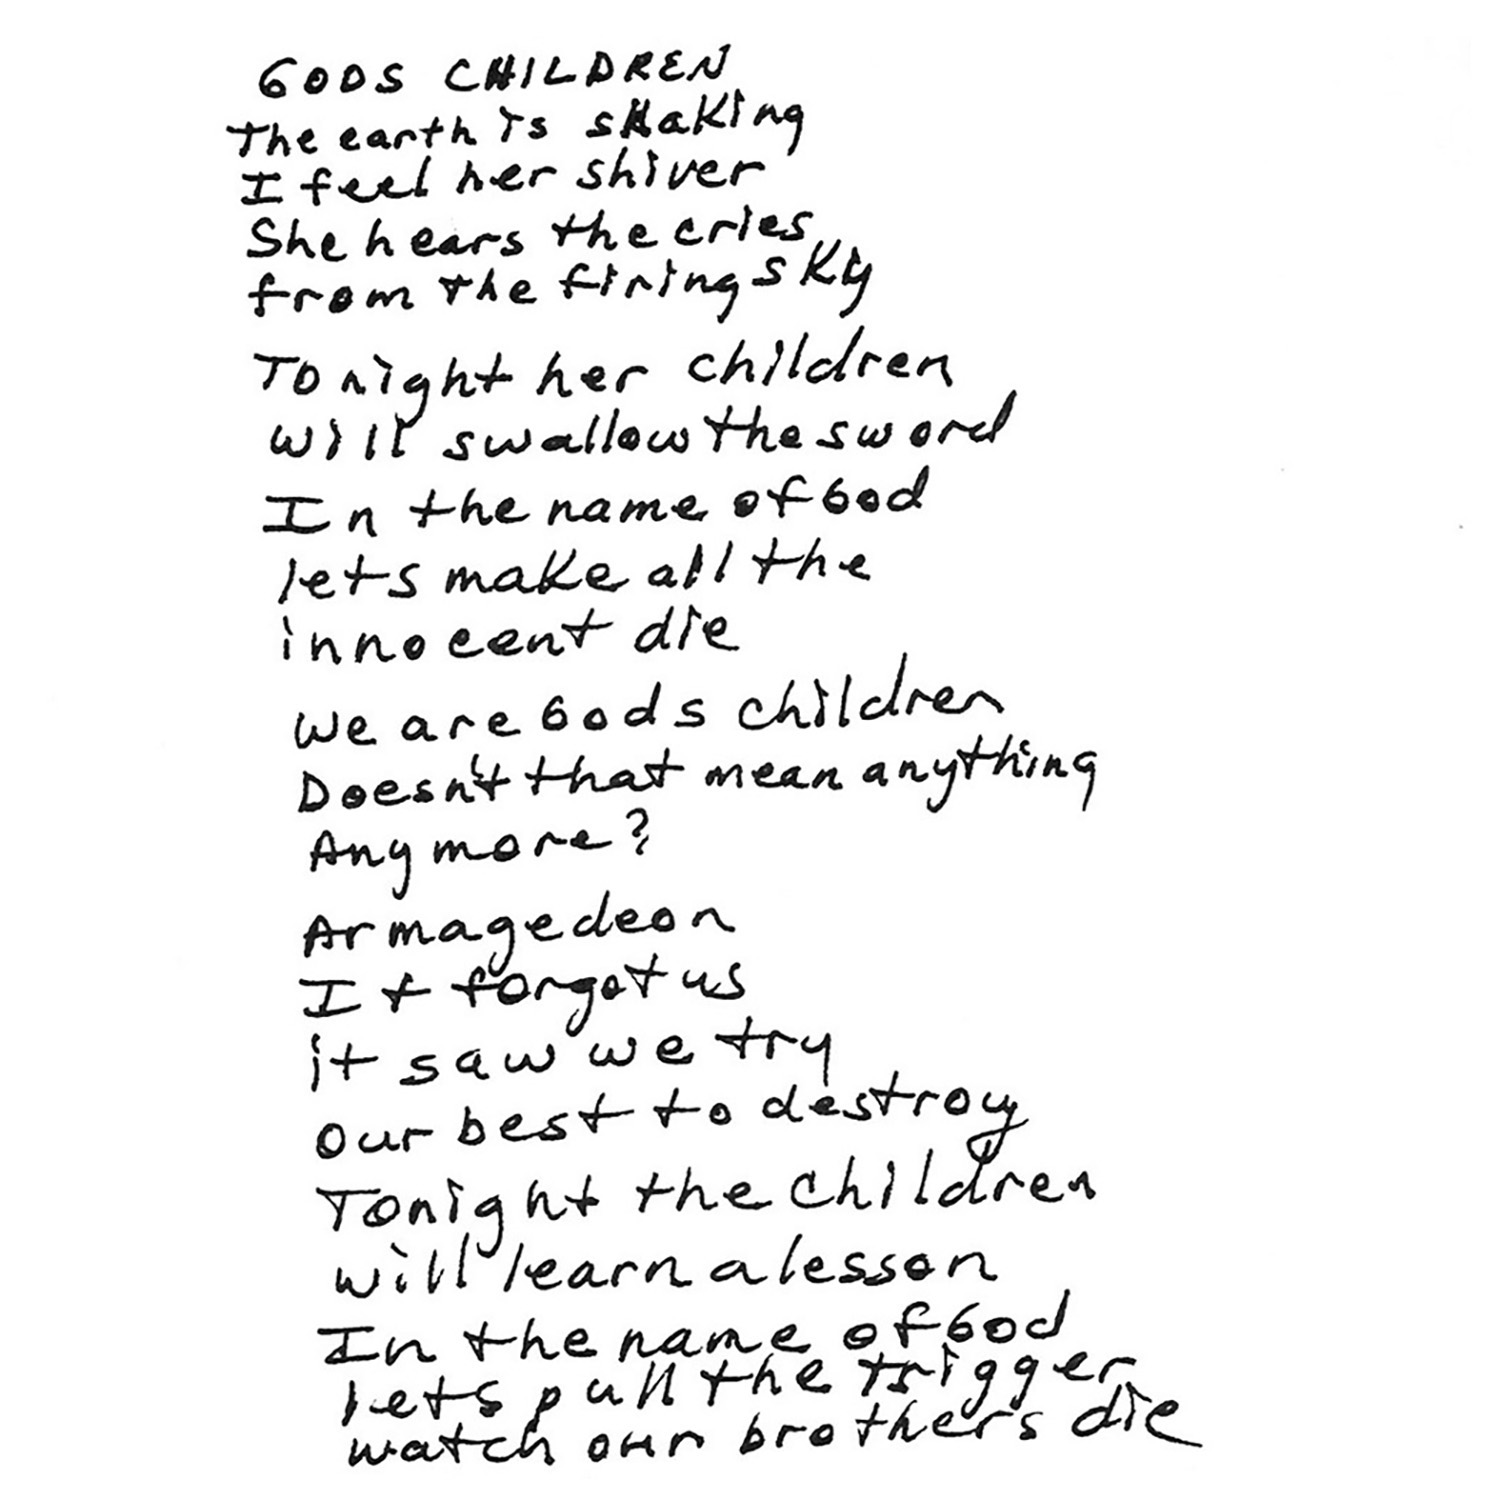 GODS CHILDREN
The earth is shaking
I feel her shiver
She hears the cries
from the firing sky
Tonight her children
will swallow the sword
In the name of God
lets make all the
innocent die
we are Gods children
Doesn't that mean anything
Anymore?
Armagedeon
It forgot us
it saw we try
our best to destroy
Tonight the children
will learn a lesson
In the name of God
lets pull the trigger
watch our brothers die